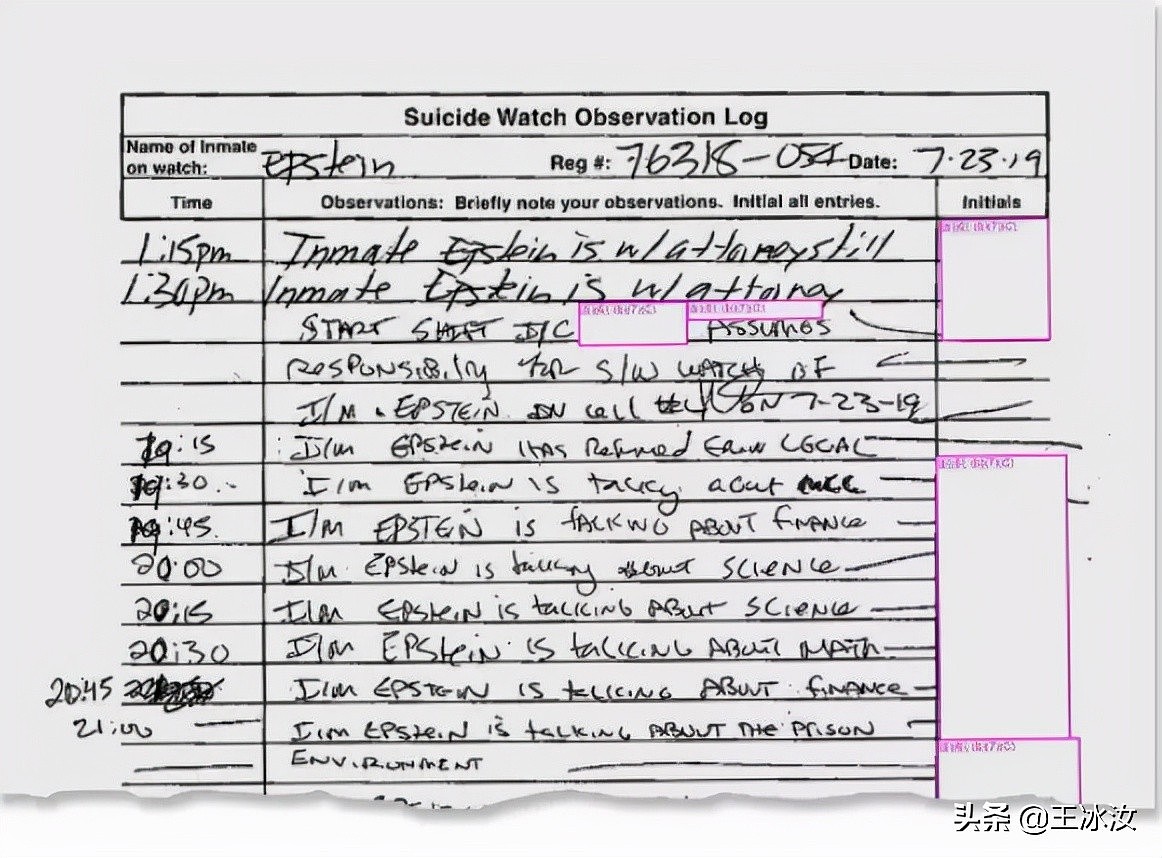 Suicide Watch Observation Log
Name of Inmate on watch: Epstein Reg #: 76318-054 Date: 7-23-19
Time Observations: Briefly note your observations. Initial all entries. Initials
1:15pm Inmate Epstein is w/attorney still
1:30pm Inmate Epstein is w/attorney
START SHIFT I/C ASSUMES
RESPONSIBILITY FOR S/W WATCH OF
I/M EPSTEIN IN cell ON 7-23-19
19:15 I/M EPSTEIN HAS Returned FROM LEGAL
19:30 I/M EPSTEIN IS talking about
19:45 I/M EPSTEIN is TALKING ABOUT finance
20:00 I/M EPSTEIN is talking about SCIENCE
20:15 I/M EPSTEIN is talking ABOUT SCIENCE
20:30 I/M EPSTEIN IS talking ABOUT MATH
20:45 I/M EPSTEIN is talking ABOUT finance
21:00 I/M EPSTEIN is talking ABOUT THE PRISON
ENVIRONMENT
头条 @王冰汝